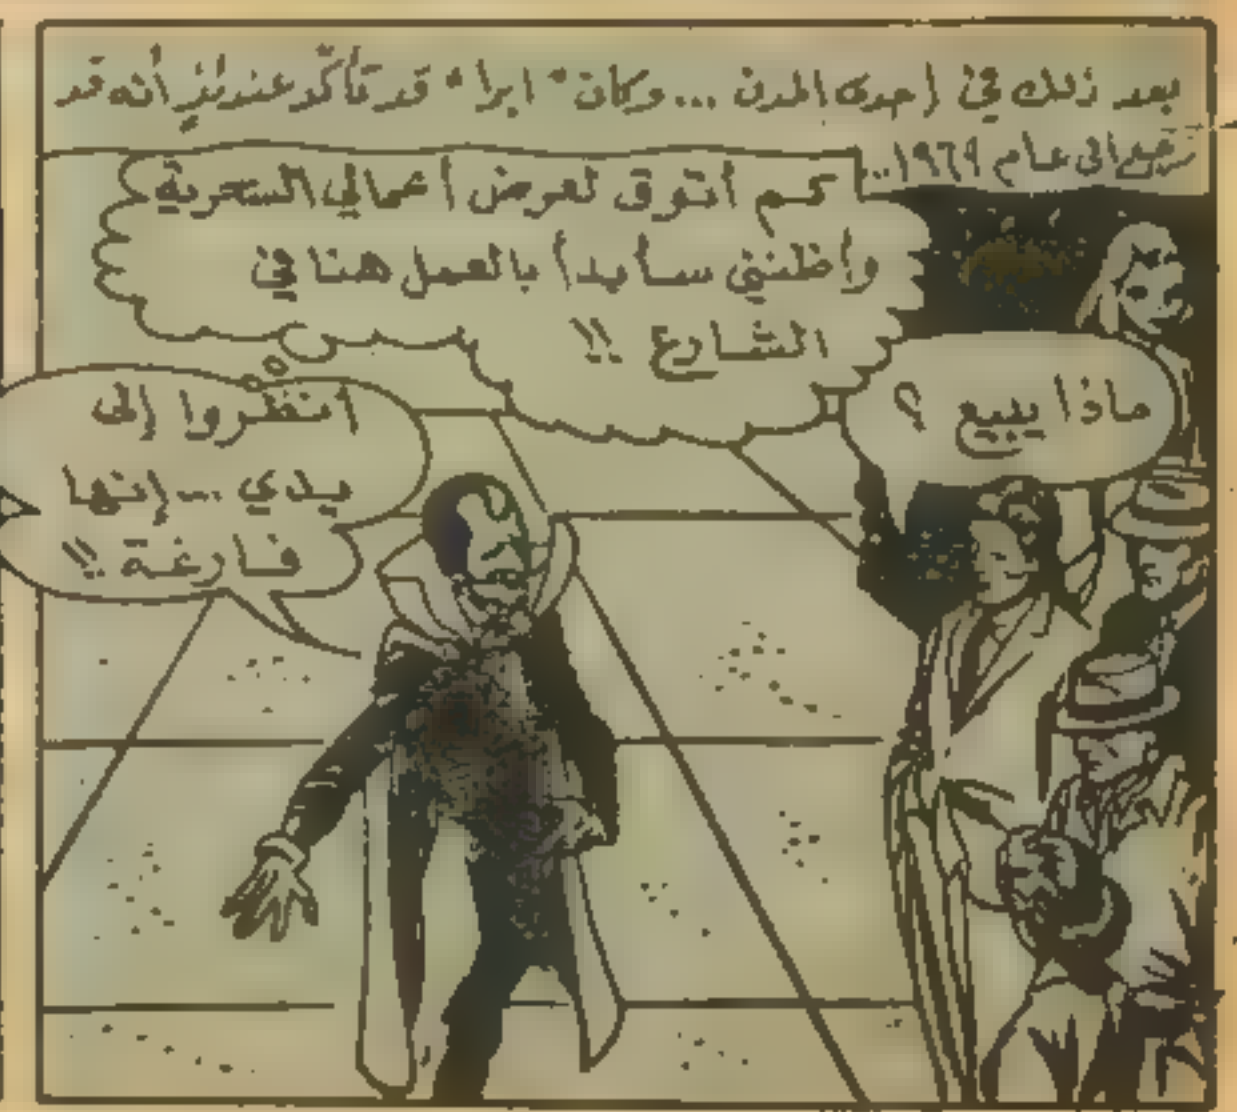 بعد ذلك في إحدى المدن ... وكان "ابرا" قد تأكّد عندئذٍ أنه قد
رجع الى عام ١٩٦٩...
كم أتوق لعرض أعمالي السحرية
وأظنني سأبدأ بالعمل هنا في
الشارع !!
ماذا يبيع ؟
أنظروا إلى
يدي ... إنها
فارغة !!